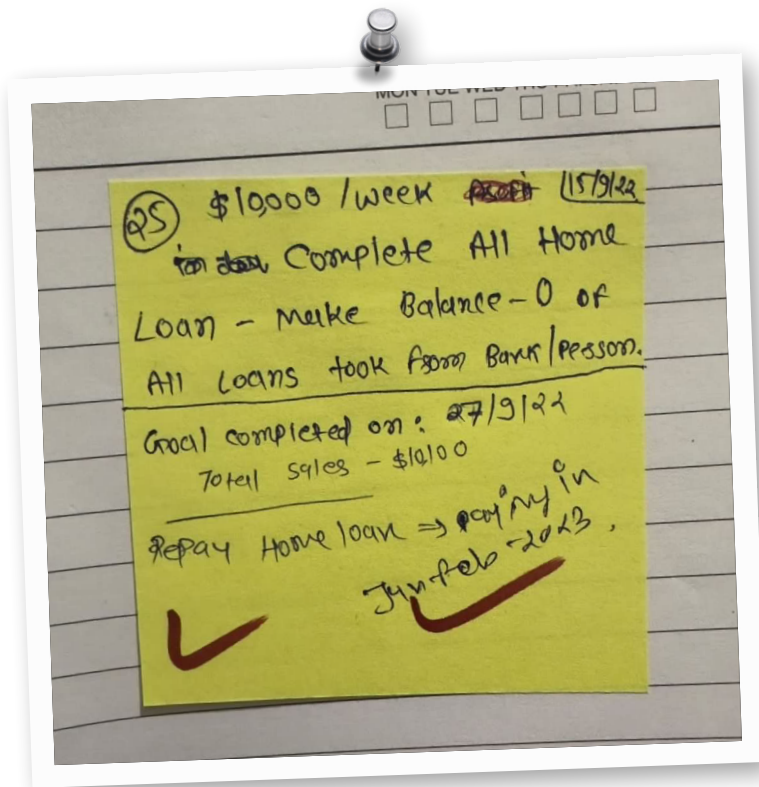 MON TUE WED THU FRI
25 $10,000 /week 15/9/22
Complete All Home
Loan - Make Balance - 0 of
All Loans took from Bank/Person.
Goal completed on: 27/9/22
Total Sales - $10,100
Repay Home loan ⇒ paying in
Jan-Feb-2023.